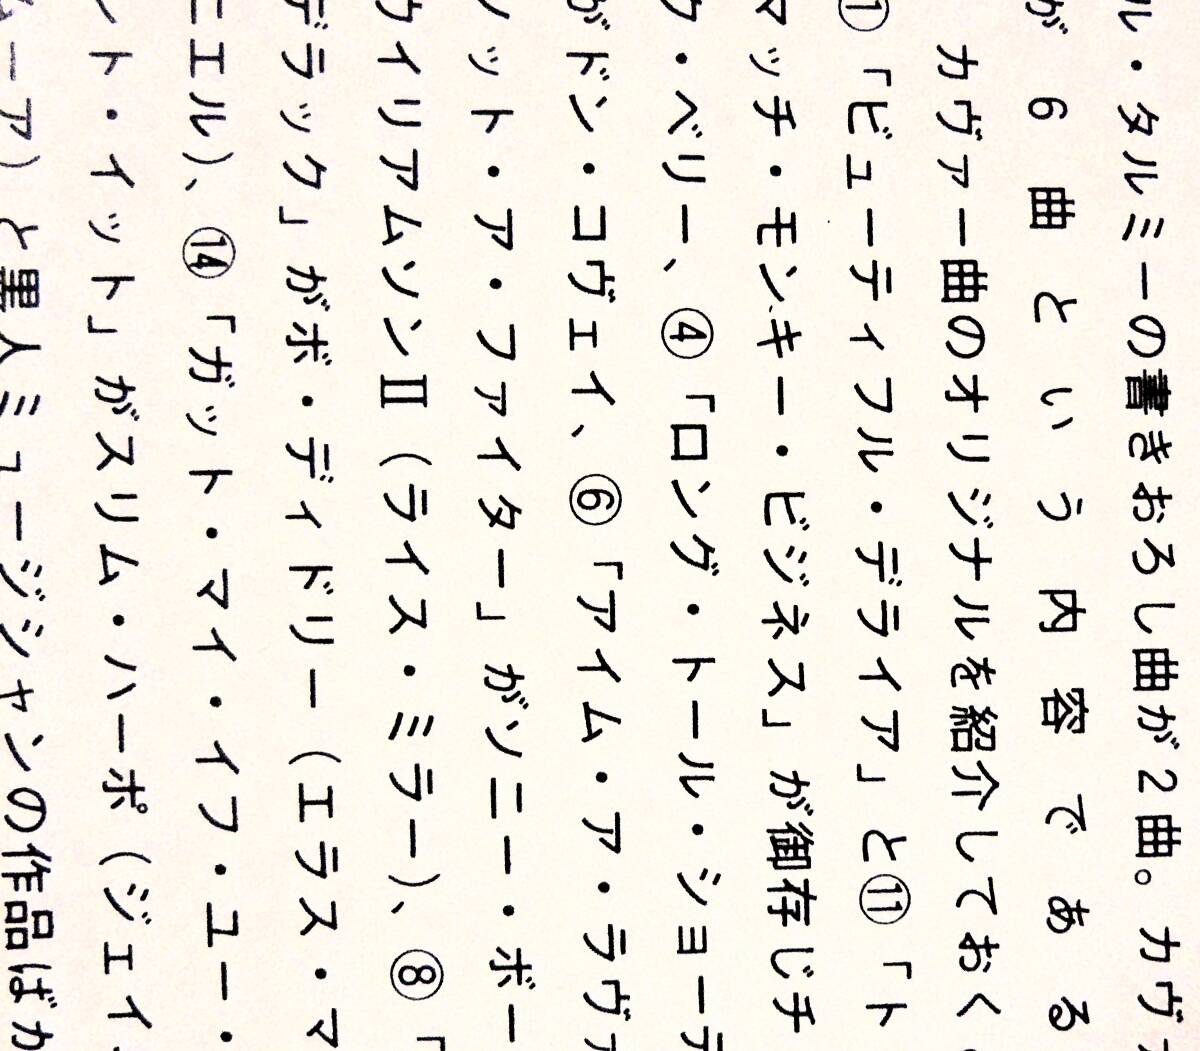 ル・タルミーの書きおろし曲が2曲。カヴ
が6曲という内容である
カヴァー曲のオリジナルを紹介しておく
①「ビューティフル・デライア」と⑪「ト
マッチ・モンキー・ビジネス」が御存じチ
ク・ベリー、④「ロング・トール・ショー
がドン・コヴェイ、⑥「アイム・ア・ラヴァ
ノット・ア・ファイター」がソニー・ボー
ウイリアムソンⅡ（ライス・ミラー）、⑧「
デラック」がボ・ディドリー（エラス・マ
ニエル）、⑭「ガット・マイ・イフ・ユー・
ント・イット」がスリム・ハーポ（ジェイ
ムーア）と黒人ミュージシャンの作品ばか